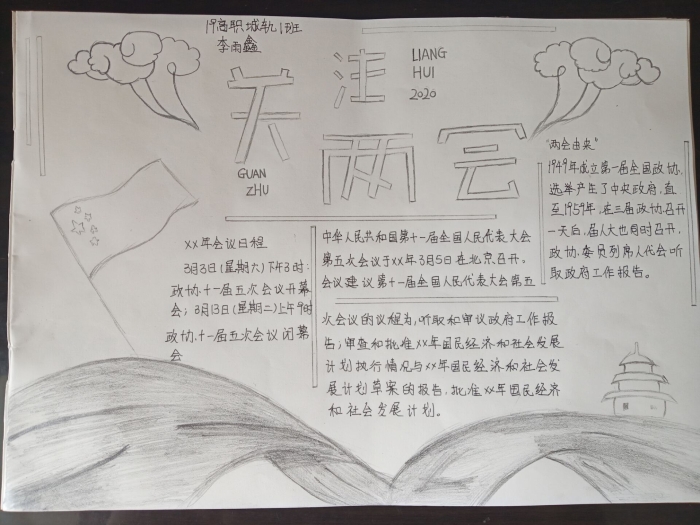 19高职城轨1班
李雨鑫
关注
LIANG
HUI
2020
两会
GUAN
ZHU
"两会由来"
1949年成立第一届全国政协,
选举产生了中央政府,直
至1959年,在三届政协召开
一天后,届人大也同时召开,
政协委员列席人代会听
取政府工作报告。
XX年会议日程
3月3日(星期六)下午3时:
政协十一届五次会议开幕
会;3月13日(星期二)上午9时
政协十一届五次会议闭幕
会
中华人民共和国第十一届全国人民代表大会
第五次会议于xx年3月5日在北京召开。
会议建议第十一届全国人民代表大会第五
次会议的议程为,听取和审议政府工作报
告;审查和批准xx年国民经济和社会发展
计划执行情况与xx年国民经济和社会发
展计划草案的报告,批准xx年国民经济
和社会发展计划。